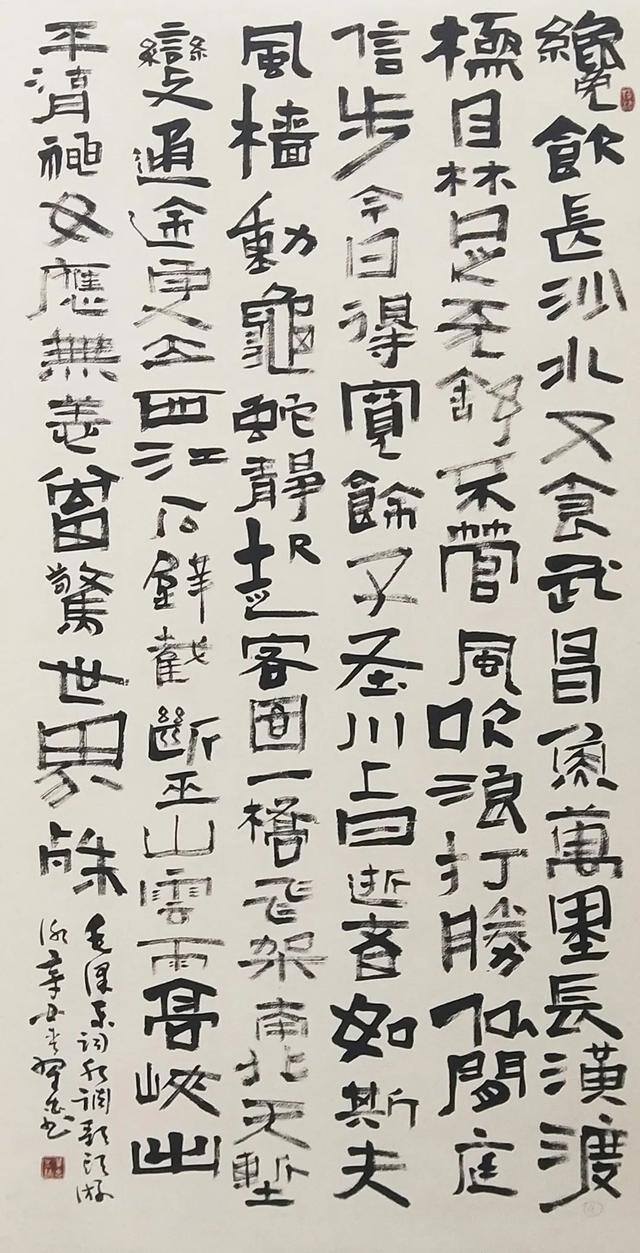 纔飲長沙水又食武昌魚萬里長潢渡
極目楚天舒不管風吹浪打勝似閒庭
信步今日得寬餘子在川上曰逝者如斯夫
風檣動龜蛇靜起宏圖一橋飛架南北天塹
變通途更立西江石壁截斷巫山雲雨高峽出
平湖神女應無恙當驚世界殊
毛澤東詞水調歌頭游
泳辛丑書